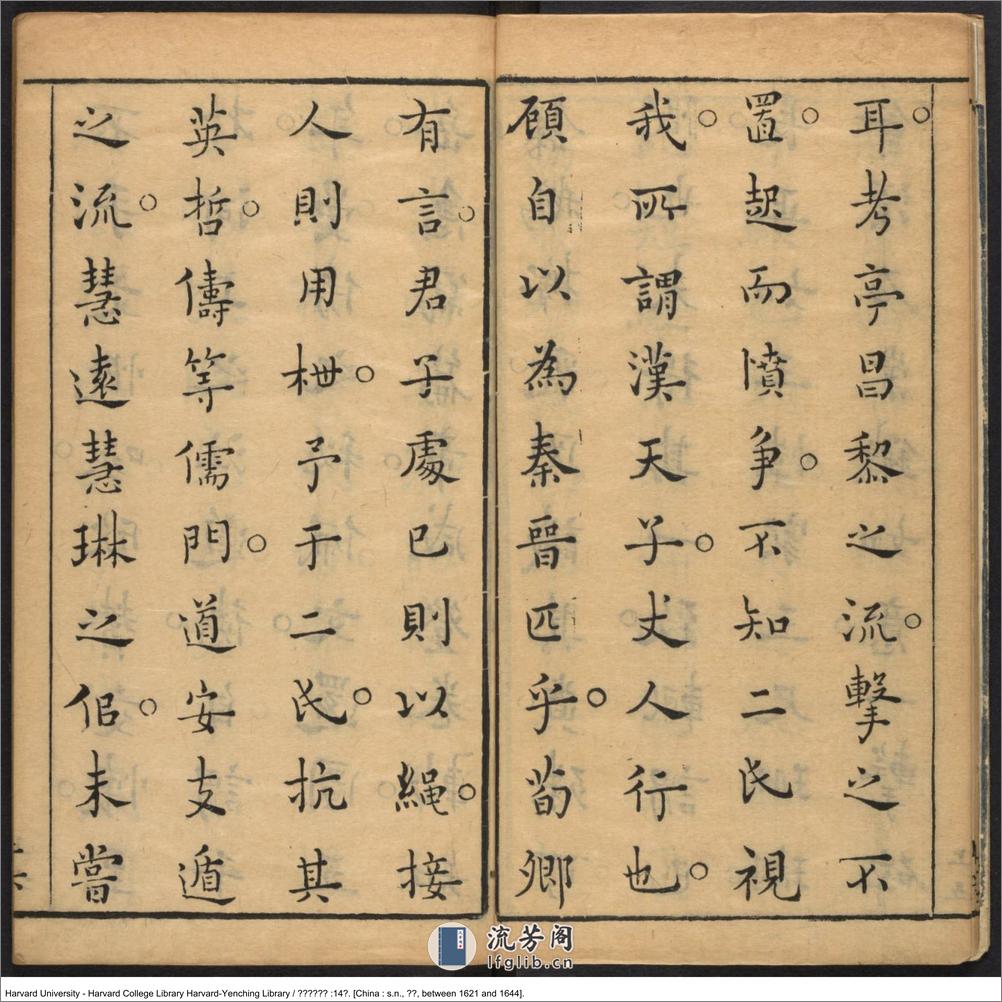 耳。考亭昌黎之流。擊之不
置。起而憤爭。不知二氏視
我。所謂漢天子。丈人行也。
顧自以為秦晉匹乎。荀卿
有言。君子處已則以繩。接
人則用枻。予于二氏。抗其
英哲。儔等儒門。道安支遁
之流。慧遠慧琳之侶。未嘗
流芳阁
lfglib.cn
Harvard University - Harvard College Library Harvard-Yenching Library / ?????? :14?. [China : s.n., ??, between 1621 and 1644].